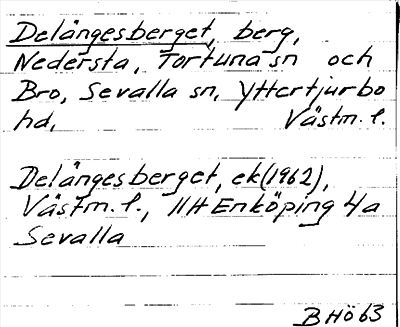 Delångesberget, berg,
Nedersta, Tortuna sn och
Bro, Sevalla sn, Yttertjurbo
hd, Västm. l.
Delångesberget, ek(1962),
Västm. l., 11H Enköping 4a
Sevalla
B Hö 63